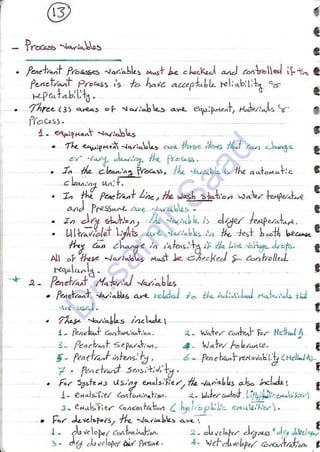 13
- Process variables
• Penetrant Processes variables must be checked and controlled if the
Penetrant Process is to have acceptable reliability &
repeatability.
• Three (3) areas of variables are equipment, Materials &
Process).
1 - equipment variables
• The equipment variables are those items that can change
or vary during the Process.
• In the cleaning Process, the variable is the automatic
cleaning unit.
• In the Penetrant Line, the wash station water temperature
and Pressure are variables.
• In dry station, the variable is dryer temperature.
• Ultraviolet Lights are variables in the test booth because
they can change in intensity if the line voltage drops.
All of these variables must be checked & controlled
regularly.
* 2 - Penetrant Material variables
• Penetrant variables are related to the individual materials that
are used.
• These variables include:
1 - Penetrant Contamination. 2 - Water Content For Method A
3 - Penetrant Separation. 4 - Water tolerance.
5 - Penetrant intensity. 6 - Penetrant removability (Method A).
7 - Penetrant Sensitivity.
• For Systems using emulsifier, the variables also include:
1 - emulsifier Contamination. 2 - Water content (lipophilic emulsifier)
3 - emulsifier Concentration (hydrophilic emulsifier).
• For developers, the variables are:
1 - developer Contamination. 2 - developer dryness (dry developer
3 - dry developer Air Pressure. 4 - Wet developer Concentration